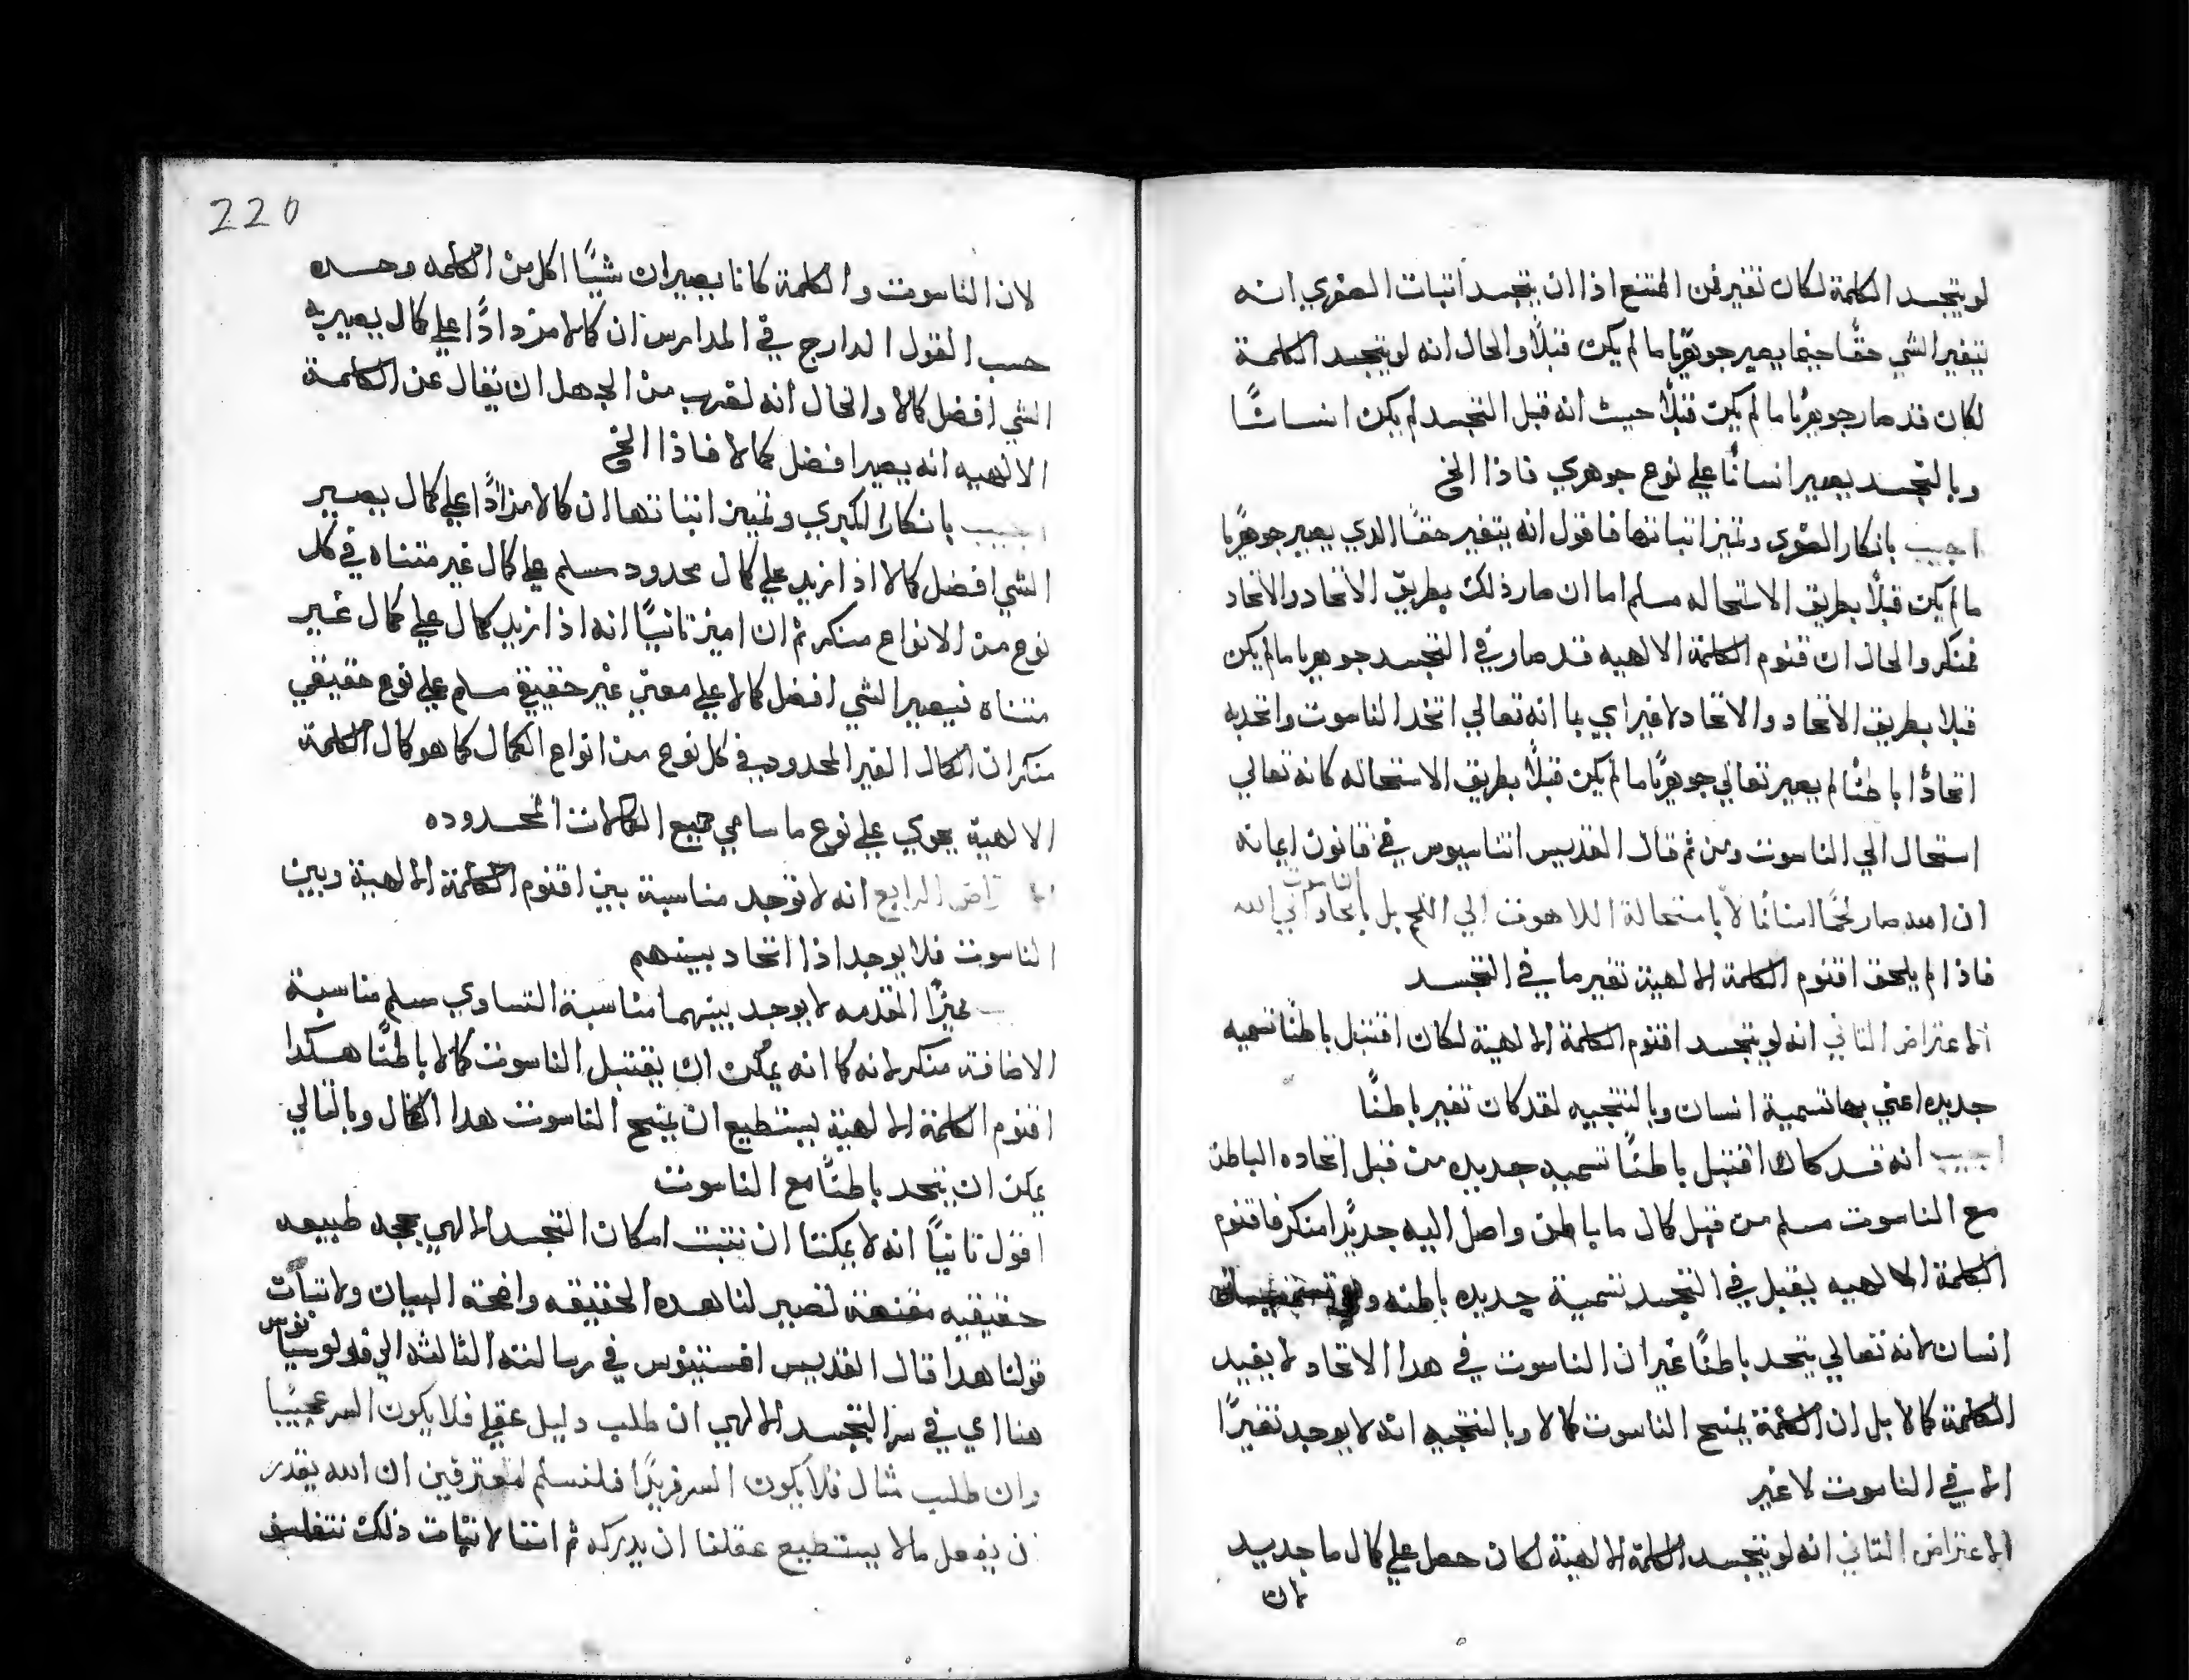 لو يتجسد الكلمة لكان تغير فمن الممتنع اذا ان يتجسد اثبات الصغري انه
يتغير الشي حقًا حينما يصير جوهريًا ما لم يكن قبلًا والحال انه لو يتجسد الكلمة
لكان قد صار جوهريًا ما لم يكن قبلًا حيث انه قبل التجسد لم يكن انسانًا
وبالتجسد يصير انسانًا علي نوع جوهري فاذا الخ
اجيب بانكار الصغري ونميز اثباتها فاقول انه يتغير حقًا الدي يصير جوهريًا
ما لم يكن قبلًا بطريق الاستحاله مسلم اما ان صار ذلك بطريق الاتخاد والاتحاد
فمنكر والحال ان قنوم الكلمة الالهيه قد صار في التجسد جوهريا ما لم يكن
قبلا بطريق الاتخاد والاتحاد لا غير اي بما انه تعالي اتخد الناسوت واتحد به
اتحادًا باطنًا لم يصير تعالي جوهريًا ما لم يكن قبلًا بطريق الاستحاله كانه تعالي
استحال الي الناسوت ومن ثم قال القديس اتناسيوس في قانون ايمانه
ان الله صار لحمًا انسانًا لا باستحالة اللاهوت الي اللحم بل باتخاد الناسوت الي الله
فاذا لم يلحق اقنوم الكلمة الالهية تغير ما في التجسد
الاعتراض التاني انه لو يتجسد اقنوم الكلمة الالهية لكان اقتبل باطنًا تسميه
جديده اعني بها تسمية انسان وبالنتجيه لقد كان تغير باطنًا
اجيب انه قد كان اقتبل باطنًا تسميه جديده من قبل اتحاده الباطن
مع الناسوت مسلم من قبل كمال ما باطن واصل اليه جديدًا منكر فاقنوم
الكلمة الالهيه يقبل في التجسد تسمية جديده باطنه و
انسان لانه تعالي يتحد باطنًا غير ان الناسوت في هدا الاتحاد لا يفيد
الكلمة كمالا بل ان الكلمة يمنح الناسوت كمالا وبالنتجيه انه لا يوجد تغيرًا
الا في الناسوت لا غير
الاعتراض التاني انه لو يتجسد الكلمة الالهية لكان حصل علي كمال ما جديد
لان
220
لان الناسوت والكلمة كانا يصيران شيًا اكمل من الكلمه وحده
حسب القول الدارج في المدارس ان كمالا مزدادًا علي كمال يصير به
الشي افضل كمالا والحال انه لضرب من الجهل ان يقال عن الكلمة
الالهيه انه يصير افضل كمالا فاذا الخ
اجيب بانكار الكبري ونميز اثباتها ان كمالا مزادًا علي كمال يصير
الشي افضل كمالا اذا زيد علي كمال محدود مسلم علي كمال غير متناه في كل
نوع من الانواع منكر ثم ان اميز تانيًا انه اذا زيد كمال علي كمال غير
متناه فيصير الشي افضل كمالا علي معني غير حقيقي مسلم علي نوع حقيقي
منكر ان الكمال الغير المحدود في كل نوع من انواع الكمال كما هو كمال الكلمة
الالهية يحوي علي نوع ما سامي جميع الكمالات المحدوده
الاعتراض الرابع انه لا توجد مناسبة بين اقنوم الكلمة الالهية وبين
الناسوت فلا يوجد اذا اتحاد بينهم
نميزًا المقدمه لا يوجد بينهما مناسبة التساوي مسلم مناسبة
الاضافة منكر لانه كما انه يمكن ان يقتبل الناسوت كمالا باطنًا هكدا
اقنوم الكلمة الالهية يستطيع ان يمنح الناسوت هدا الكمال وبالتالي
يمكن ان يتحد باطنًا مع الناسوت
اقول تانيًا انه لا يمكننا ان نتبت امكان التجسد الالهي بحجه طبيعه
حقيقيه مقنعة تصير لنا هده الحقيقه واضحة البيان ولاتبات
قولنا هدا قال القديس اغستينوس في رسالته الثالثه الي فولوسيانوس
هنا اي في سر التجسد الالهي ان طلب دليل عقلي فلا يكون السر عجيبًا
وان طلب مثال فلا يكون السر فريدًا فلنسلم معترفين ان الله يقدر
ان يفعل ما لا يستطيع عقلنا ان يدركه ثم اننا لاثبات ذلك